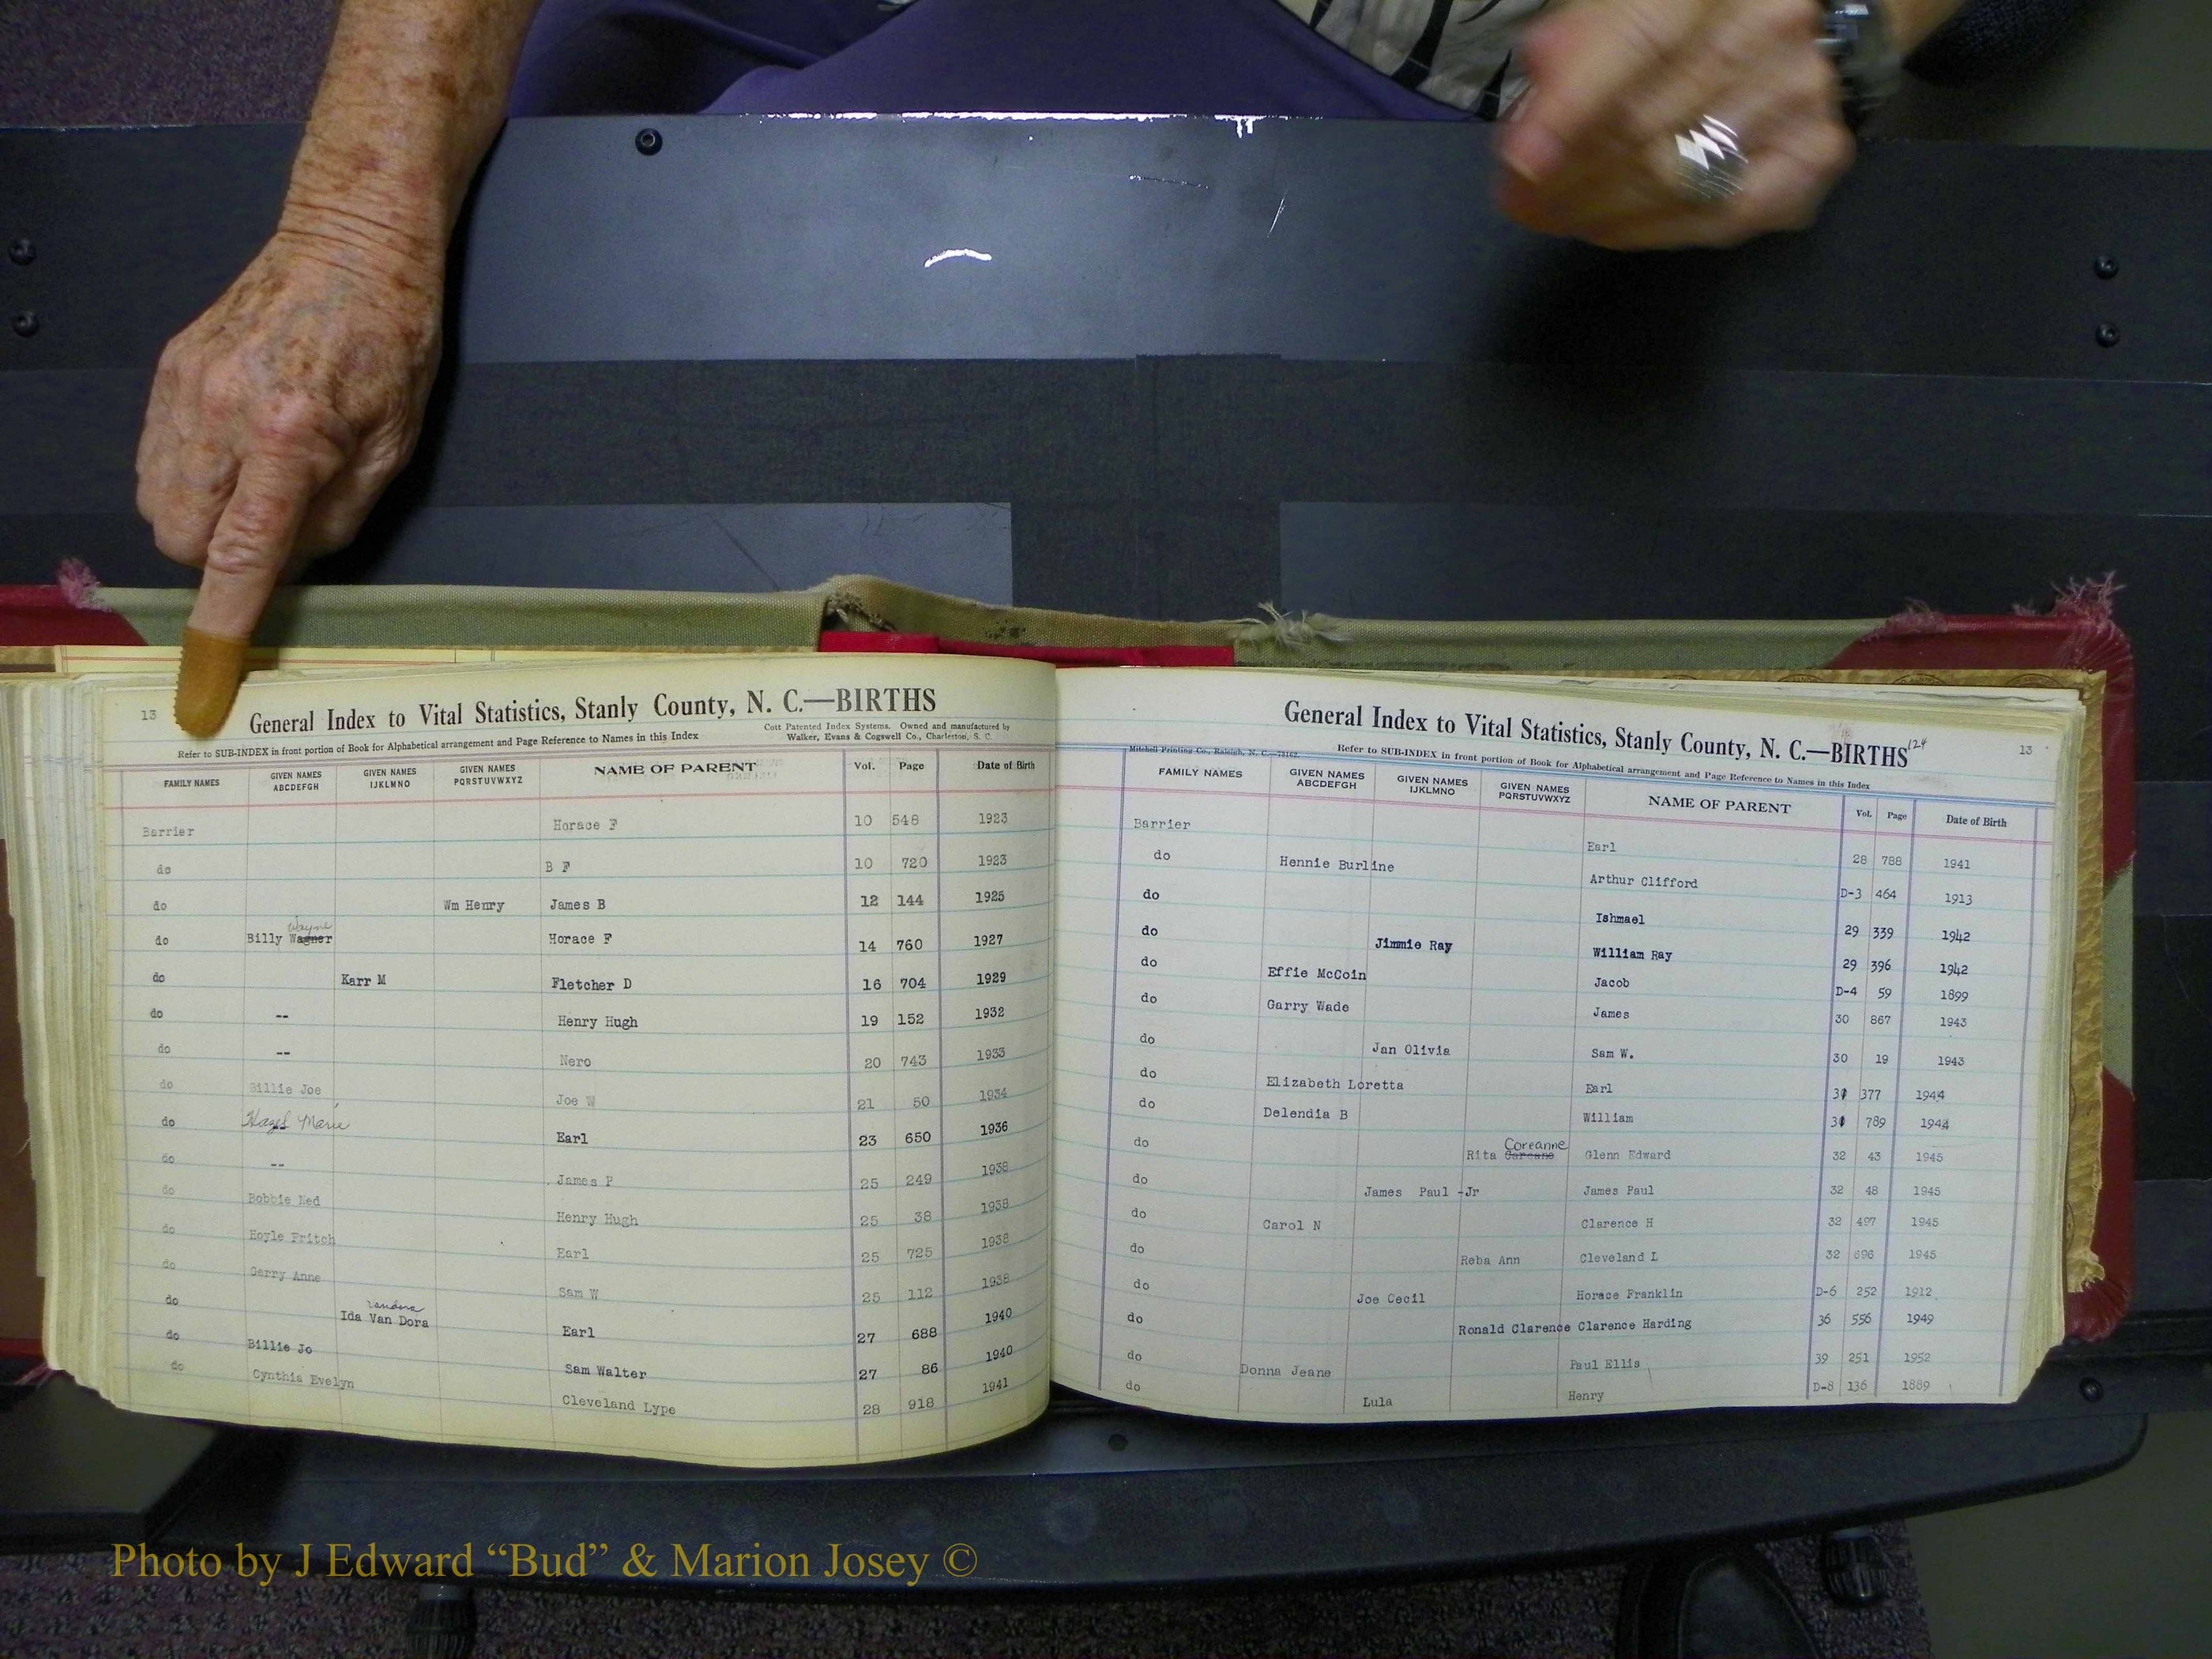 13
General Index to Vital Statistics, Stanly County, N. C.—BIRTHS
Refer to SUB-INDEX in front portion of Book for Alphabetical arrangement and Page Reference to Names in this Index
Cott Patented Index Systems. Owned and manufactured by
Walker, Evans & Cogswell Co., Charleston, S. C.
FAMILY NAMES GIVEN NAMES ABCDEFGH GIVEN NAMES IJKLMNO GIVEN NAMES PQRSTUVWXYZ NAME OF PARENT Vol. Page Date of Birth
Barrier Horace F 10 548 1923
do B F 10 720 1923
do Wm Henry James B 12 144 1925
Wayne
do Billy Wagner Horace F 14 760 1927
do Karr M Fletcher D 16 704 1929
do -- Henry Hugh 19 152 1932
do -- Nero 20 743 1933
do Billie Joe Joe W 21 50 1934
do Hazel Marie Earl 23 650 1936
do -- James P 25 249 1938
do Bobbie Ned Henry Hugh 25 38 1938
do Hoyle Fritch Earl 25 725 1938
do Gerry Anne Sam W 25 112 1938
do Ida Van Dora Earl 27 688 1940
do Billie Jo Sam Walter 27 86 1940
do Cynthia Evelyn Cleveland Lype 28 918 1941
General Index to Vital Statistics, Stanly County, N. C.—BIRTHS 124
13
Mitchell Printing Co., Raleigh, N. C.
Refer to SUB-INDEX in front portion of Book for Alphabetical arrangement and Page Reference to Names in this Index
FAMILY NAMES GIVEN NAMES ABCDEFGH GIVEN NAMES IJKLMNO GIVEN NAMES PQRSTUVWXYZ NAME OF PARENT Vol. Page Date of Birth
Barrier Earl 28 788 1941
do Hennie Burline Arthur Clifford D-3 464 1913
do Ishmael 29 339 1942
do Jimmie Ray William Ray 29 396 1942
do Effie McCoin Jacob D-4 59 1899
do Garry Wade James 30 867 1943
do Jan Olivia Sam W. 30 19 1943
do Elizabeth Loretta Earl 31 377 1944
do Delendia B William 31 789 1944
Coreanne
do Rita Glenn Edward 32 43 1945
do James Paul -Jr James Paul 32 48 1945
do Carol N Clarence H 32 497 1945
do Reba Ann Cleveland L 32 696 1945
do Joe Cecil Horace Franklin D-6 252 1912
do Ronald Clarence Clarence Harding 36 556 1949
do Donna Jeane Paul Ellis 39 251 1952
do Lula Henry D-8 136 1889
Photo by J Edward “Bud” & Marion Josey ©